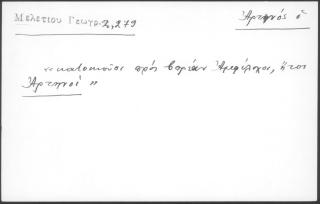 Μελετίου Γεωγρ. 2,279
Ἀρτηνός ὁ
"κατοικοῦσι πρός βορέαν Ἀμφίλοχοι, ἤτοι
Ἀρτηνοί"